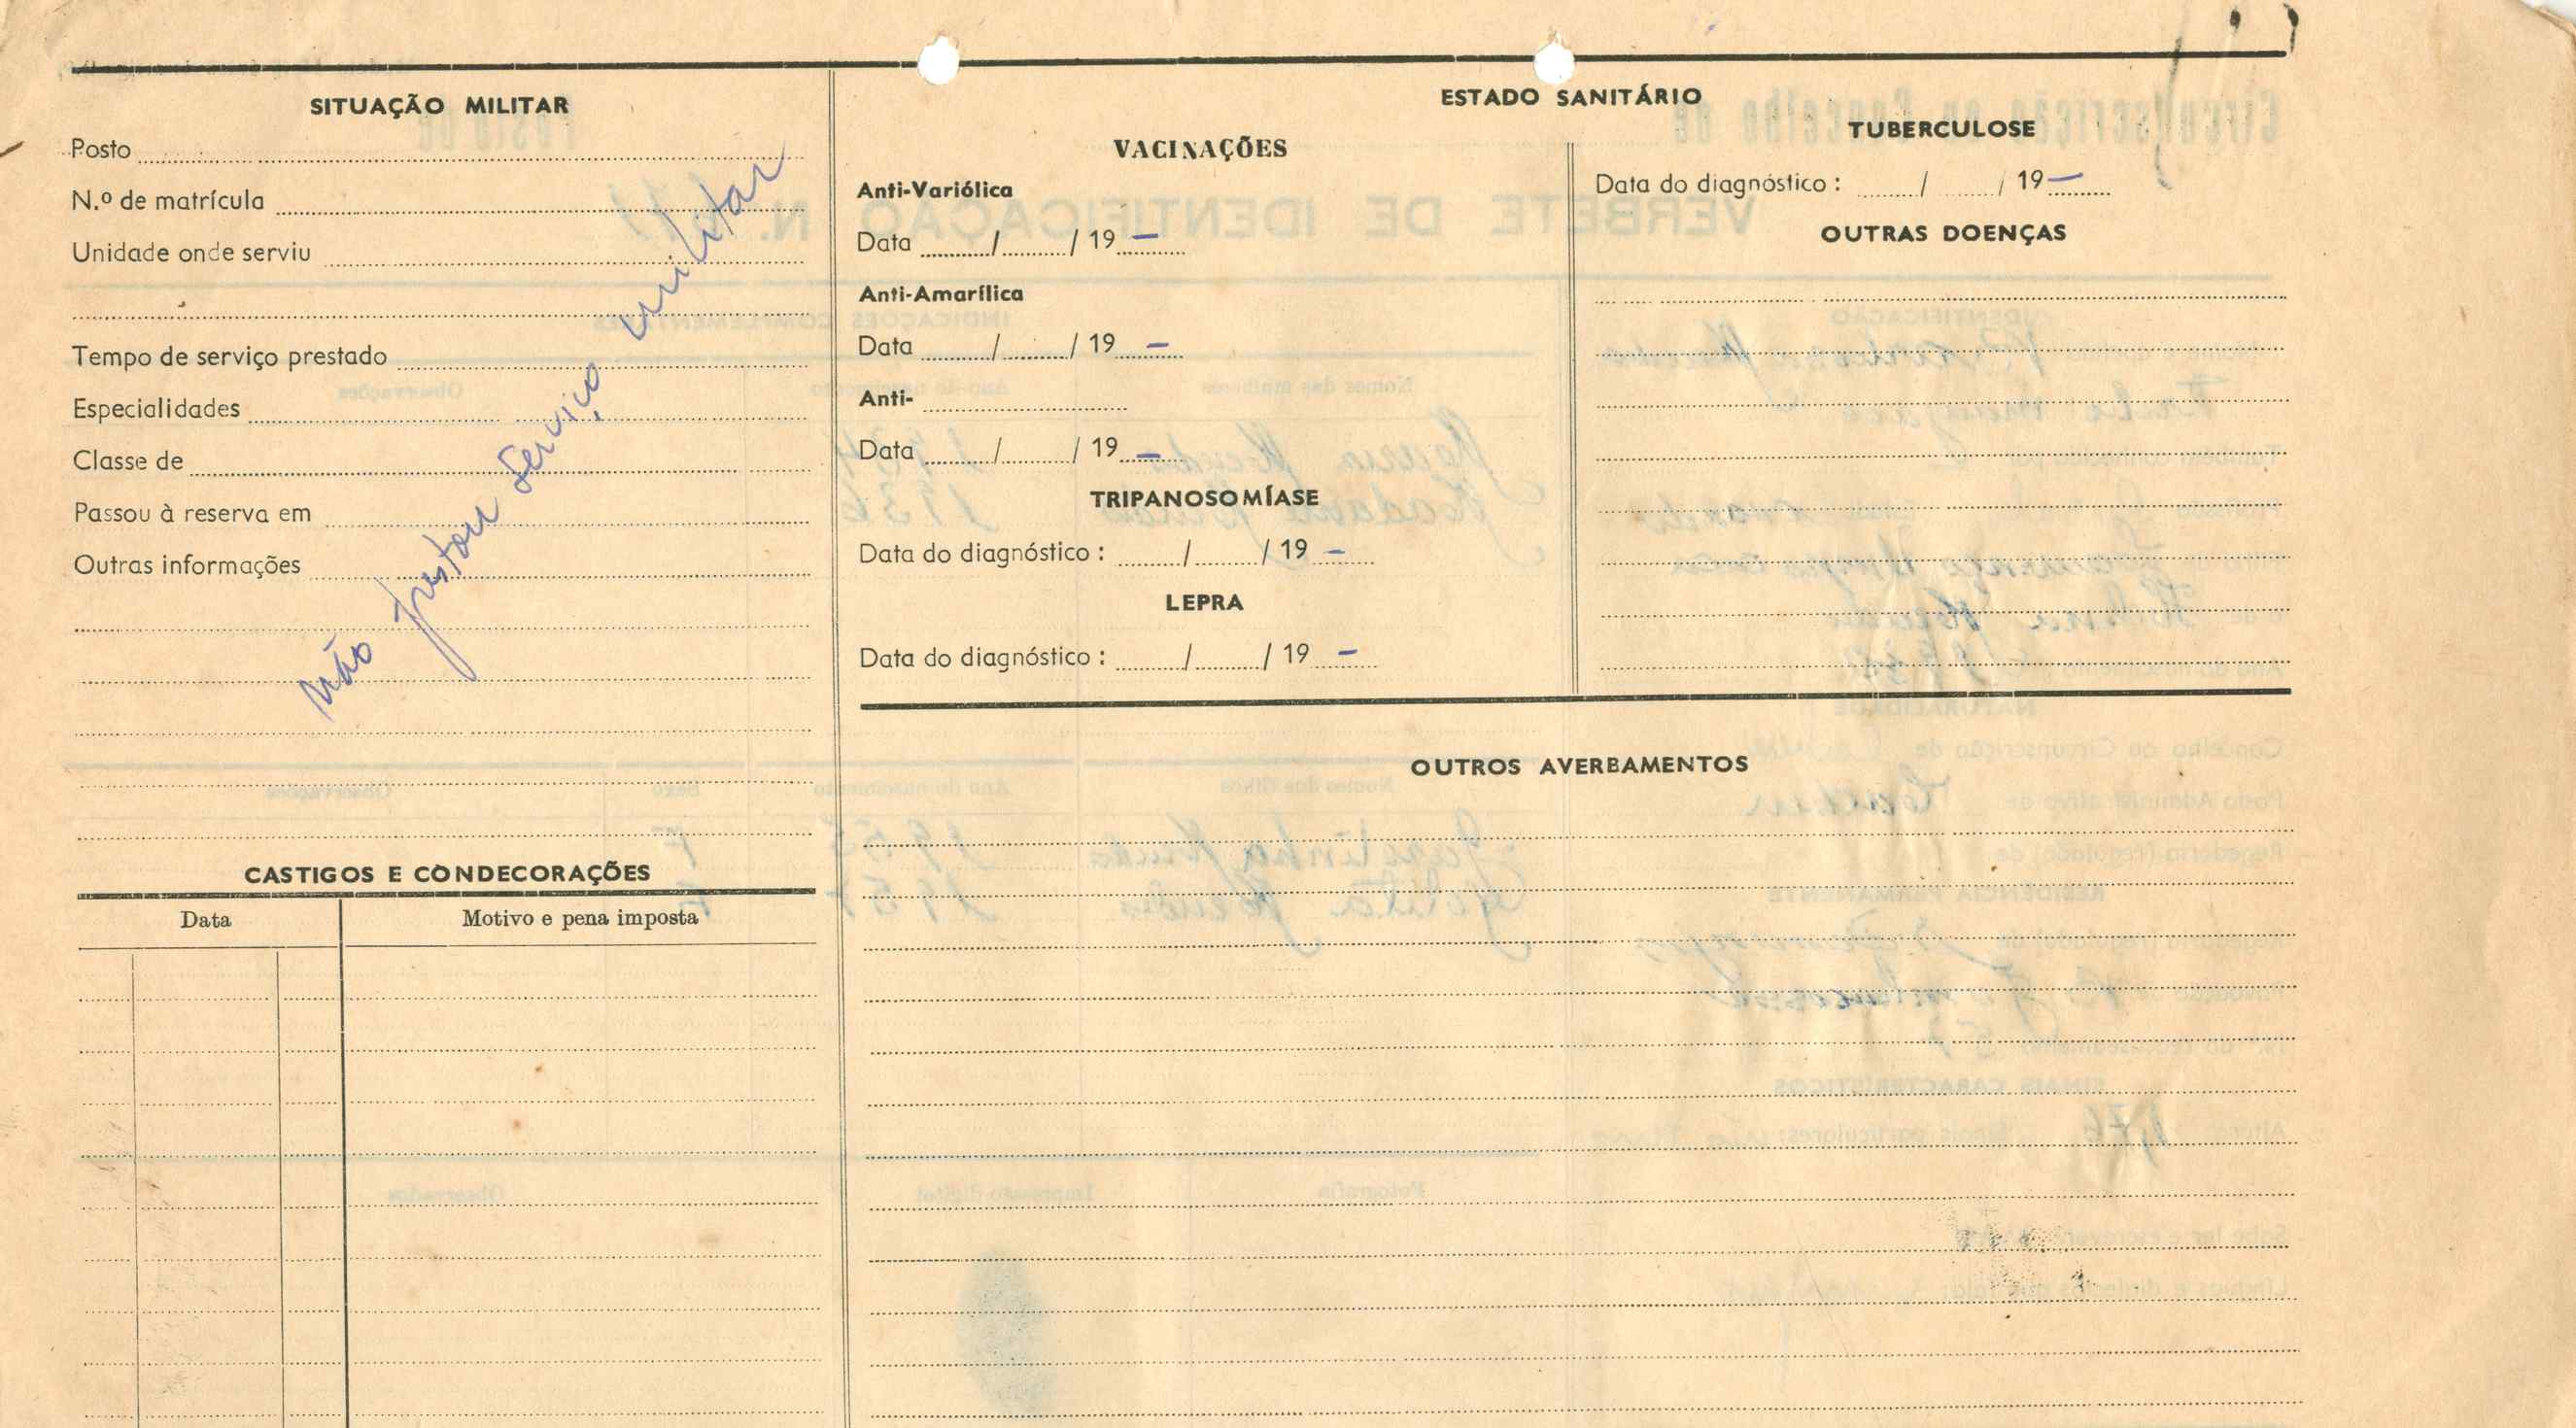 SITUAÇÃO MILITAR
Posto
N.º de matrícula
Unidade onde serviu
Tempo de serviço prestado
Especialidades
Classe de
Passou à reserva em
Outras informações
não prestou serviço militar
CASTIGOS E CONDECORAÇÕES
Data Motivo e pena imposta
ESTADO SANITÁRIO
VACINAÇÕES
Anti-Variólica
Data / / 19 —
Anti-Amarílica
Data / / 19 —
Anti-
Data / / 19 —
TRIPANOSOMÍASE
Data do diagnóstico : / / 19 —
LEPRA
Data do diagnóstico : / / 19 —
TUBERCULOSE
Data do diagnóstico : / / 19 —
OUTRAS DOENÇAS
OUTROS AVERBAMENTOS